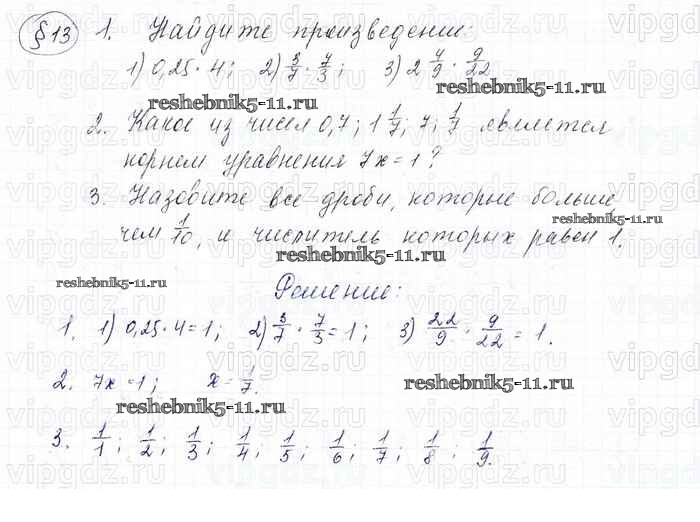 § 13 1. Найдите произведение:
1) 0,25 · 4; 2) 3/7 · 7/3; 3) 2 4/9 · 9/22
reshebnik5-11.ru
2. Какое из чисел 0,7; 1 1/7; 7; 1/7 является
корнем уравнения 7x = 1?
3. Назовите все дроби, которые больше
reshebnik5-11.ru
чем 1/10, и числитель которых равен 1.
reshebnik5-11.ru
reshebnik5-11.ru
Решение:
1. 1) 0,25 · 4 = 1; 2) 3/7 · 7/3 = 1; 3) 22/9 · 9/22 = 1.
2. 7x = 1; x = 1/7.
reshebnik5-11.ru
reshebnik5-11.ru
3. 1/1; 1/2; 1/3; 1/4; 1/5; 1/6; 1/7; 1/8; 1/9.
vipgdz.ru